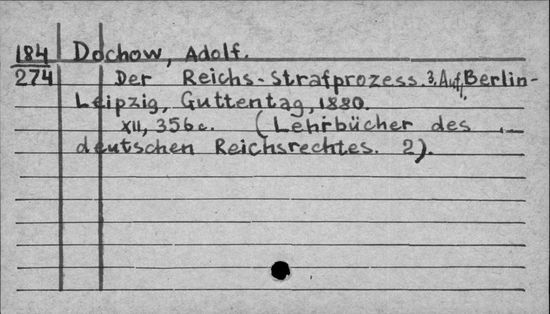 184 Dochow, Adolf.
274 Der Reichs-Strafprozess. 3. Aufl. Berlin-
Leipzig, Guttentag, 1880.
XII, 356 c. (Lehrbücher des
deutschen Reichsrechtes. 2).